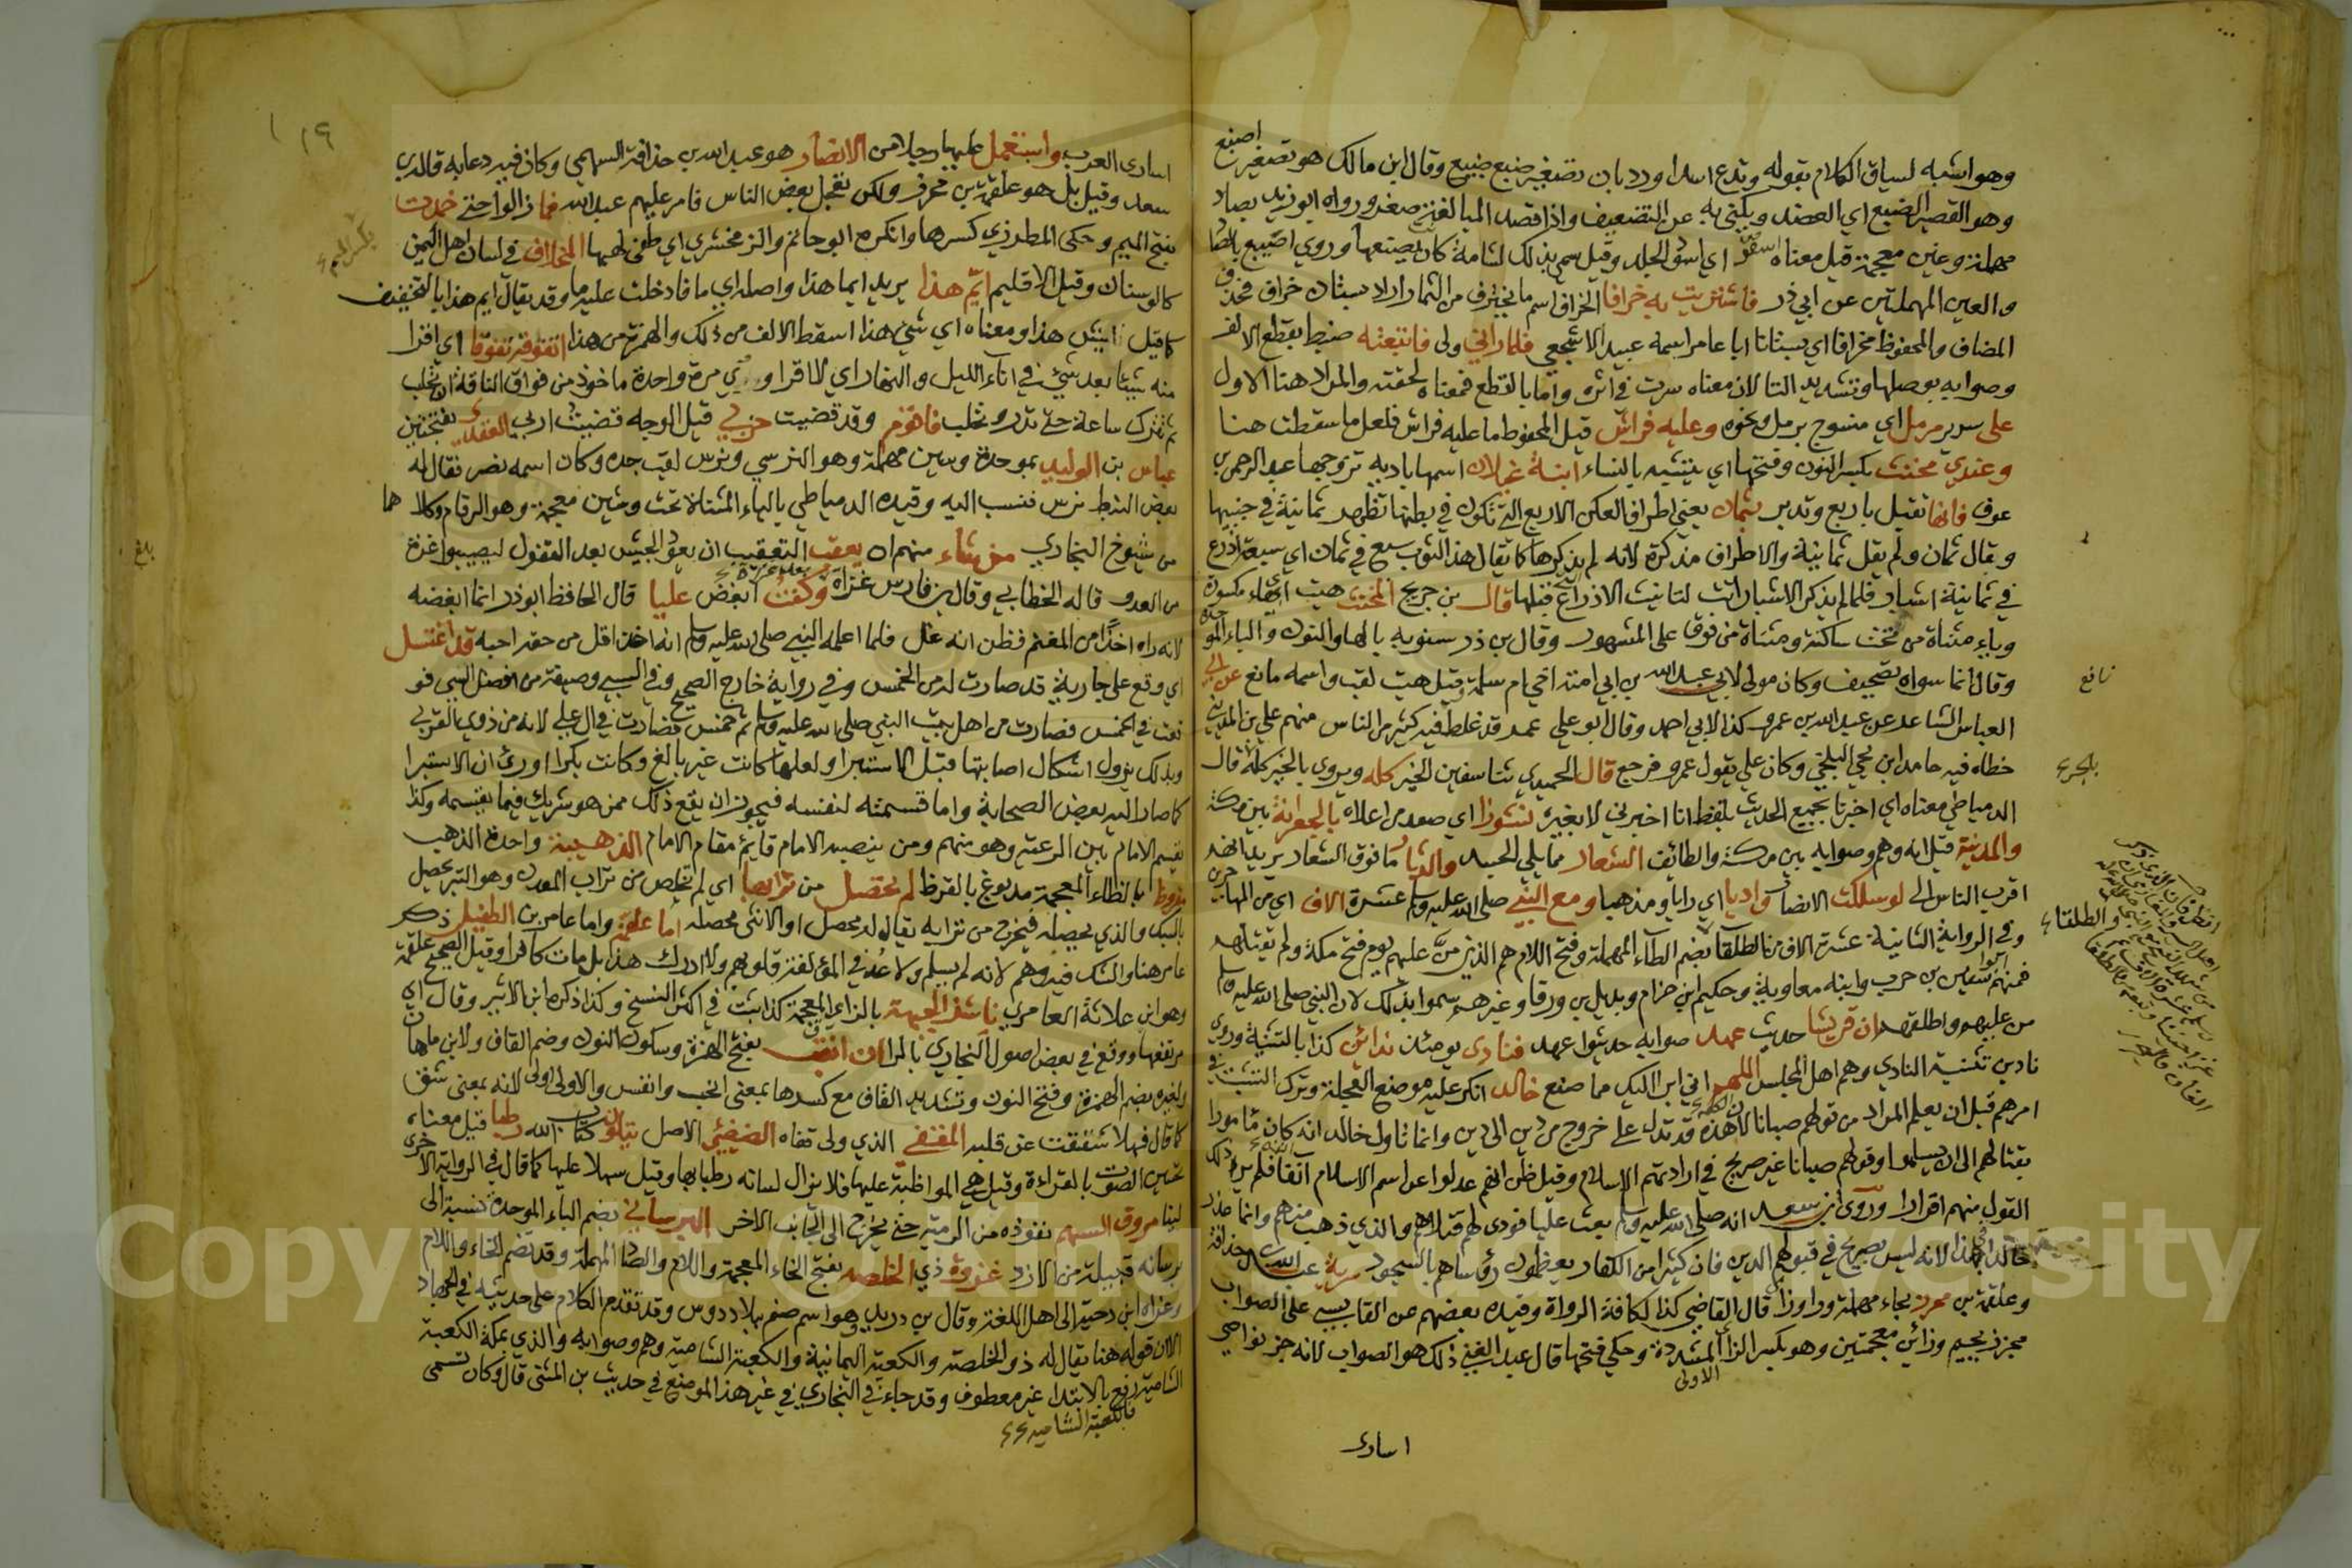 وهو اشبه لسياق الكلام بقوله وتدع اسدا ورد بان تصغير ضبع ضبيع وقال ابن مالك هو تصغير اضبع
وهو القصير الضبع اي العضد ويكنى به عن الضعيف واذا قصد المبالغة صغر ورواه ابو زيد بصاد
مهملة وغين معجمة قيل معناه اسود اي اسود الجلد وقيل سمي بذلك لشامة كان يصبغها وروي اصيبع بالصاد
والعين المهملتين عن ابي ذر فاشتريت به خرافا الخراف اسم ما يخترف من الثمار اراد بستان خراف فحذف
المضاف والمحفوظ مخرافا اي بستانا ابا عامر اسمه عبيد الاشجعي فلما راني ولى فاتبعته ضبط بقطع الالف
وصوابه بوصلها وتشديد التا لان معناه سرت في اثره واما بالقطع فمعناه لحقته والمراد هنا الاول
على سرير مرمل اي منسوج برمل ونحوه وعليه فراش قيل المحفوظ ما عليه فراش فلعل ما سقطت هنا
وعندي مخنث بكسر النون وفتحها اي يتشبه بالنساء ابنة غيلان اسمها بادية تزوجها عبد الرحمن بن
عوف فانها تقبل باربع وتدبر بثمان يعني اطراف العكن الاربع التي تكون في بطنها تظهر ثمانية في جنبيها
وقال ثمان ولم يقل ثمانية والاطراف مذكرة لانه لم يذكرها كما يقال هذا الثوب سبع في ثمان اي سبعة اذرع
في ثمانية اشبار فلما لم يذكر الاشبار انث لتانيث الاذراع قبلها قال بن جريج المخنث هيت بهاء مكسورة
وياء مثناة من تحت ساكنة ومثناة من فوق على المشهور وقال بن درستويه بالهاء والنون والباء الموحدة
وقال انما سواه تصحيف وكان مولى لابي عبد الله بن ابي امية اخي ام سلمة وقيل هيت لقب واسمه ماتع عن ابي
العباس الشاعر عن عبد الله بن عمرو كذا لابي احمد وقال ابو علي عمر قد غلط فيه كثير من الناس منهم علي بن المديني
خطاه فيه حامد ابن يحيى البلخي وكان علي يقول عمرو فرجع قال الحميدي ثنا سفين الخبر كله ويروي بالخبر كله قال
الدمياطي معناه اي اخبرنا بجميع الحديث بلفظ انا اخبرني لا بغيره نشوزا اي صعد من اعلاه بالجعرانة بين مكة
والمدينة قيل انه وهم وصوابه بين مكة والطائف الشعار مما يلي الجسد والدثار ما فوق الشعار يريد انهم
اقرب الناس الي لو سلكت الانصار واديا اي رايا ومذهبا ومع النبي صلى الله عليه وسلم عشرة الاف اي من المهاجرين
وفي الرواية الثانية عشرة الاف من الطلقاء بضم الطاء المهملة وفتح اللام هم الذين من عليهم يوم فتح مكة ولم يقتلهم
فمنهم ابو سفين بن حرب وابنه معاوية وحكيم ابن حزام وبديل بن ورقا وغيرهم سموا بذلك لان النبي صلى الله عليه وسلم
من عليهم واطلقهم ان قريشا حديث عهد صوابه حديثوا عهد فنادى يومئذ ندائين كذا بالتثنية وروي
نادين تثنية النادي وهم اهل المجلس اللهم اني ابرا اليك مما صنع خالد انكر عليه موضع العجلة وترك التثبت في
امرهم قبل ان يعلم المراد من قولهم صبانا لان هذه الكلمة قد تدل على خروج من دين الى دين وانما تاول خالد انه كان مامورا
بقتالهم الى ان يسلموا وقولهم صبانا غير صريح في ارادتهم الاسلام وقيل ظن انهم عدلوا عن اسم الاسلام انفة فلم ير ذلك
القول منهم اقرارا وروى ابن سعد انه صلى الله عليه وسلم بعث عليا فودى لهم قتلاهم والذي ذهب منهم وانما عذر
خالدا بهذا لانه ليس بصريح في قبولهم الدين فان كثيرا من الكفار يعظمون رؤساهم بالسجود سرية عبد الله بن حذافة
وعلقمة بن محرز بحاء مهملة ورا وزا قال القاضي كذا لكافة الرواة وقيده بعضهم عن القابسي على الصواب
مجزز بجيم وزائين معجمتين وهو بكسر الزا المشددة الاولى وحكي فتحها قال عبد الغني ذلك هو الصواب لانه جز نواصي
اسارى
نافع
بالجر
والطلقاء
١١٩
اسارى العرب واستعمل عليها رجلا من الانصار هو عبد الله بن حذافة السهمي وكان فيه دعابة قاله بن
سعد وقيل بل هو علقمة بن محرز ولكن تعجل بعض الناس فامر عليهم عبد الله فما زالوا حتى خمدت
بفتح الميم وحكى المطرزي كسرها وانكره ابو حاتم والزمخشري اي طفى لهبها المخلاف في لسان اهل اليمن
كالرستاق وقيل الاقليم ايم هذا يريد ايما هذا واصله اي ما فادخلت عليه ما وقد يقال ايم هذا بالتخفيف
كما قيل ايش هذا ومعناه اي شي هذا اسقط الالف من ذلك والهمزة من هذا اتفوقه تفوقا اي اقرا
منه شيئا بعد شيء في اناء الليل والنهار اي لا اقرا وردي مرة واحدة ماخوذ من فواق الناقة ان تحلب
ثم تترك ساعة حتى تدر وتحلب فاقوم وقد قضيت حزبي قيل الوجه قضيت اربي العقدي بفتحتين
عباس بن الوليد بموحدة وسين مهملة وهو النرسي ونرس لقب جده وكان اسمه نصر فقال له
بعض النبط نرس فنسب اليه وقيده الدمياطي بالياء المثناة تحت وشين معجمة وهو الرقام وكلاهما
من شيوخ البخاري من شاء منهم ان يعقب التعقيب ان يعود الجيش بعد القفول ليصيبوا غزة
من العدو قاله الخطابي وقال بن فارس غزاة بعد غزاة وكنت ابغض عليا قال الحافظ ابو ذر انما ابغضه
لانه راه اخذ من المغنم فظن انه غل فلما اعلمه النبي صلى الله عليه وسلم انه اخذ اقل من حقه احبه قد اغتسل
اي وقع على جارية قد صارت له من الخمس وفي رواية خارج الصحيح وفي السبي وصيفة من افضل السبي فو
قعت في الخمس فصارت من اهل بيت النبي صلى الله عليه وسلم ثم خمس فصارت في ال علي لانه من ذوي القربى
وبذلك يزول اشكال اصابتها قبل الاستبرا ولعلها كانت غير بالغ وكانت بكرا او رئ ان لا استبرا
كما صار اليه بعض الصحابة واما قسمته لنفسه فيجوز ان يقع ذلك ممن هو شريك فيما يقسمه وكذا
يقسم الامام بين الرعية وهو منهم ومن ينصبه الامام قائم مقام الامام الذهيبة واحدة الذهب
مقروظ بالظاء المعجمة مدبوغ بالقرظ لم تحصل من ترابها اي لم تخلص من تراب المعدن وهو التبر تحصل
بالسبك والذي يحصله فيخرج من ترابه يقال له محصل او الانثى محصلة اما علقمة واما عامر بن الطفيل ذكر
عامر هنا والشك فيه وهم لانه لم يسلم ولا عد في المؤلفة قلوبهم ولا ادرك هذا بل مات كافرا وقيل الصحيح علقمة
وهو ابن علاثة العامري ناشز الجبهة بالزاي المعجمة كذا ثبت في اكثر النسخ وكذا ذكره ابن الاثير وقال اي
مرتفعها ووقع في بعض اصول البخاري بالرا ان انقب بفتح الهمزة وسكون النون وضم القاف ولابن ماهان
ولغيره بضم الهمزة وفتح النون وتشديد القاف مع كسرها بمعنى انقب وانفس والاولى اولى لانه بمعنى شق
كما قال فهلا شققت عن قلبه المقفي الذي ولى قفاه الضئضئ الاصل يتلون كتاب الله رطبا قيل معناه
تحسين الصوت بالقراءة وقيل هي المواظبة عليها فلا يزال لسانه رطبا بها وقيل سهلا عليها كما قال في الرواية الاخرى
لينا مروق السهم نفوذه من الرمية حتى يخرج الى الجانب الاخر البرساني بضم الباء الموحدة نسبة الى
برسانة قبيلة من الازد غزوة ذي الخلصة بفتح الخاء المعجمة واللام والصاد المهملة وقد تضم الخاء واللام
وعزاه ابن دحية الى اهل اللغة وقال بن دريد هو اسم صنم ببلاد دوس وقد تقدم الكلام على حديثه في الجهاد
الان قوله هنا يقال له ذو الخلصة والكعبة اليمانية والكعبة الشامية وهم وصوابه والذي بمكة الكعبة
الشامية رفع بالابتدا غير معطوف وقد جاء في البخاري في غير هذا الموضع في حديث بن المثنى قال وكان تسمى
بالكعبة الشامية
بكسر الميم
بلغ
Copy King Saud University